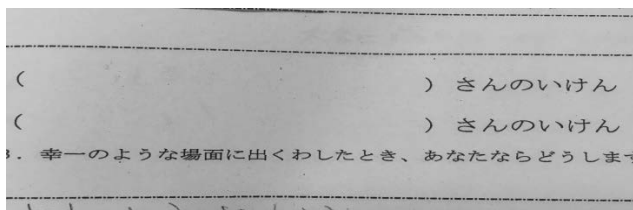 ( ) さんのいけん
( ) さんのいけん
3. 幸一のような場面に出くわしたとき、あなたならどうします